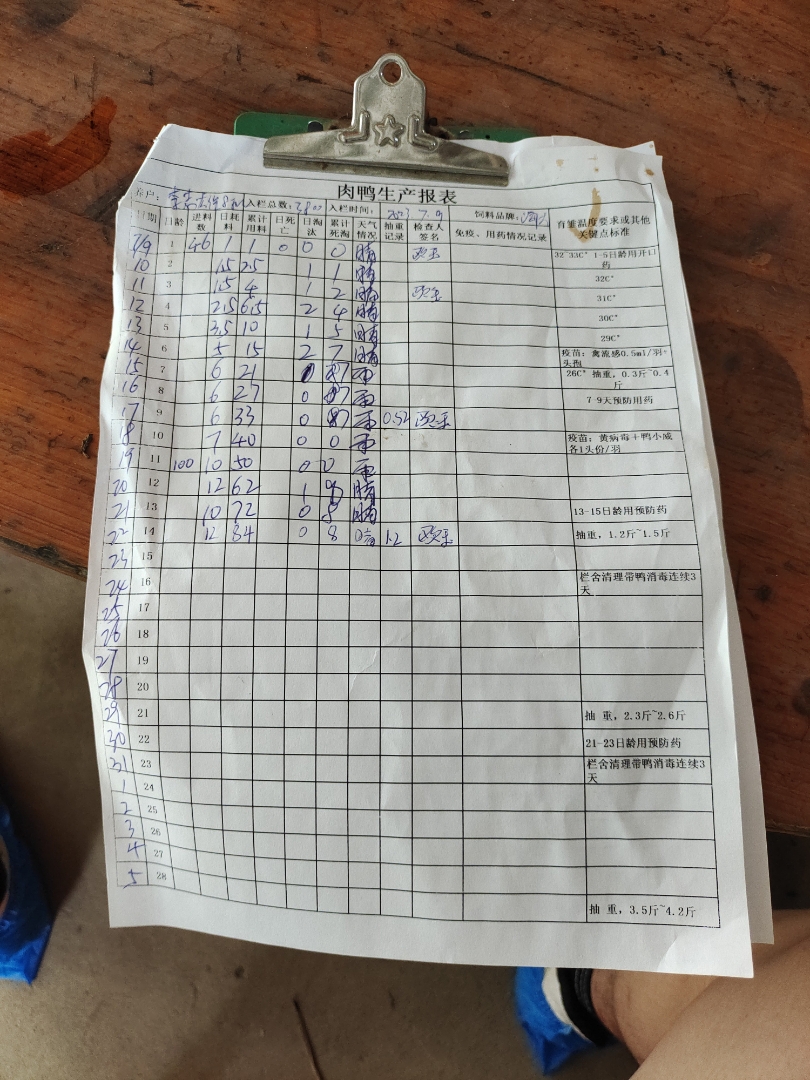 肉鸭生产报表
养户: 入栏总数: 2800 入栏时间: 2023 7.9 饲料品牌:
日期 日龄 进料数 日耗料 累计用料 日死亡 日淘汰 累计死淘 天气情况 抽重记录 检查人签名 免疫、用药情况记录 育雏温度要求或其他关键点标准
7/9 1 46 1 1 0 0 0 晴 32~33C° 1-5日龄用开口药
10 2 1.5 2.5 1 1 晴 32C°
11 3 1.5 4 1 2 晴 31C°
12 4 2.5 6.5 2 4 晴 30C°
13 5 3.5 10 1 5 晴 29C°
14 6 5 15 2 7 晴 疫苗: 禽流感0.5ml/羽+头孢
15 7 6 21 0 7 雨 26C° 抽重, 0.3斤~0.4斤
16 8 6 27 0 7 雨 7-9天预防用药
17 9 6 33 0 7 雨 0.52
18 10 7 40 0 0 雨 疫苗: 黄病毒+鸭小减各1头份/羽
19 11 100 10 50 0 0 雨
20 12 12 62 1 8 晴
21 13 10 72 0 8 晴 13-15日龄用预防药
22 14 12 84 0 8 晴 1.2 抽重, 1.2斤~1.5斤
23 15
24 16 栏舍清理带鸭消毒连续3天
25 17
26 18
27 19
28 20
29 21 抽 重, 2.3斤~2.6斤
30 22 21-23日龄用预防药
31 23 栏舍清理带鸭消毒连续3天
1 24
2 25
3 26
4 27
5 28
抽 重, 3.5斤~4.2斤